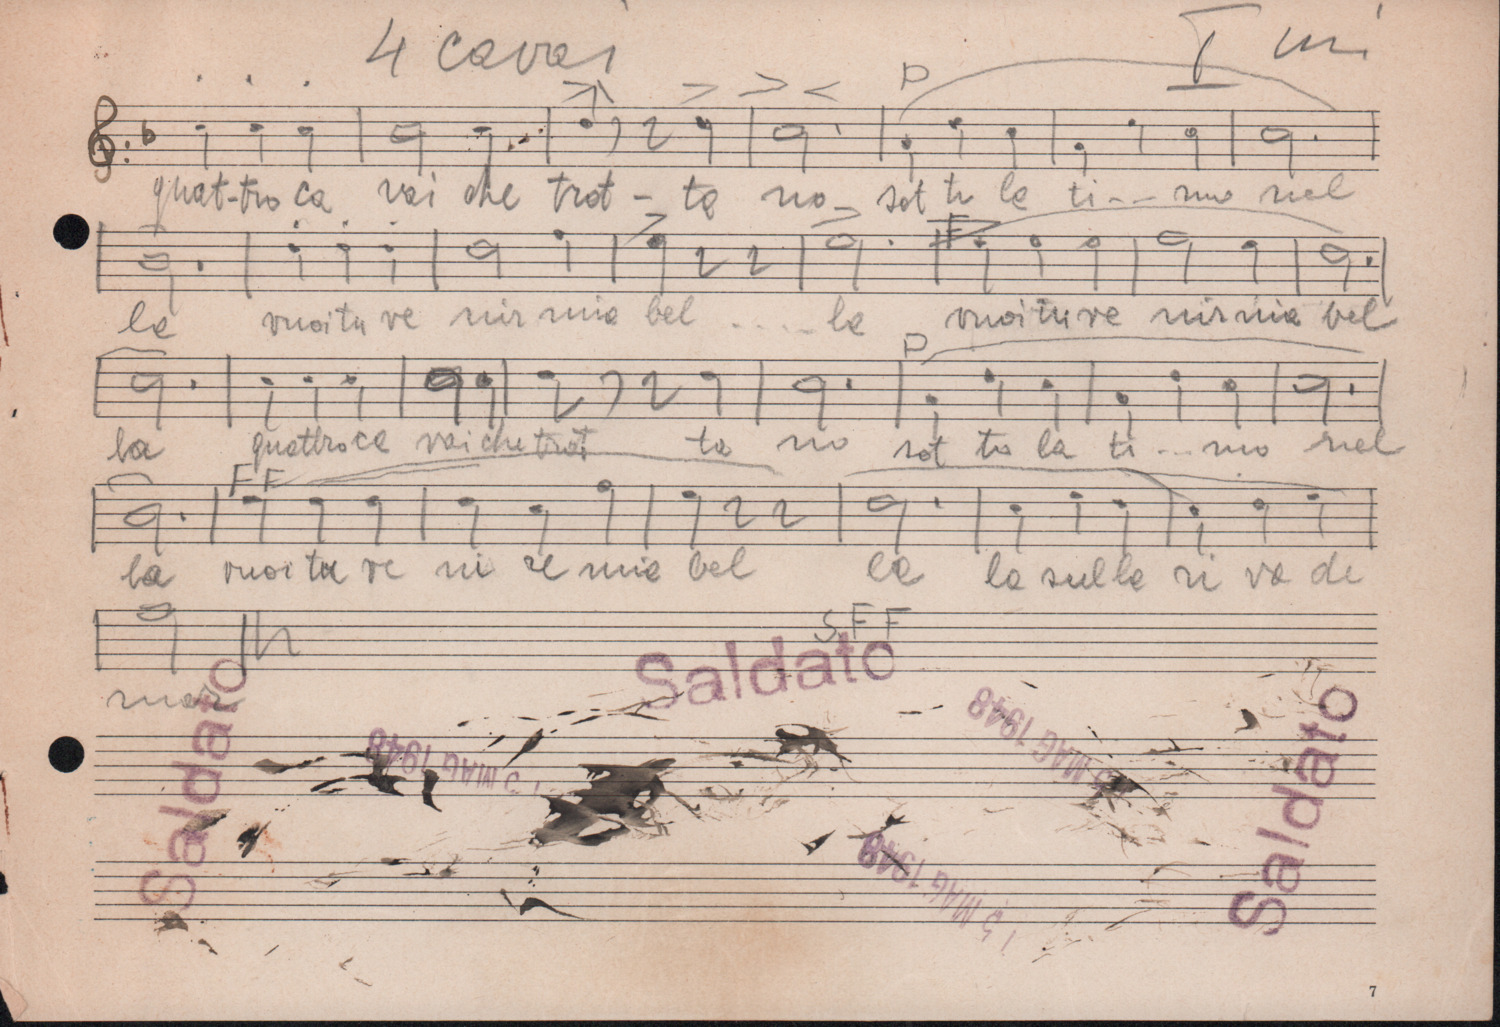 4 cavai
I mi
P
quat-tro ca vai che trot - ta no - sot to la ti - - mo nel
F
la vuoi tu ve nir mia bel ..... la vuoi tu ve nir mia bel
P
la quattro ca vai che trot ta no sot to la ti ... mo nel
FF
la vuoi tu ve ni re mia bel la la sulla ri va de
S.FF
mar
Saldato
Saldato
Saldato
15 MAG 1948
15 MAG 1948
15 MAG 1948
7